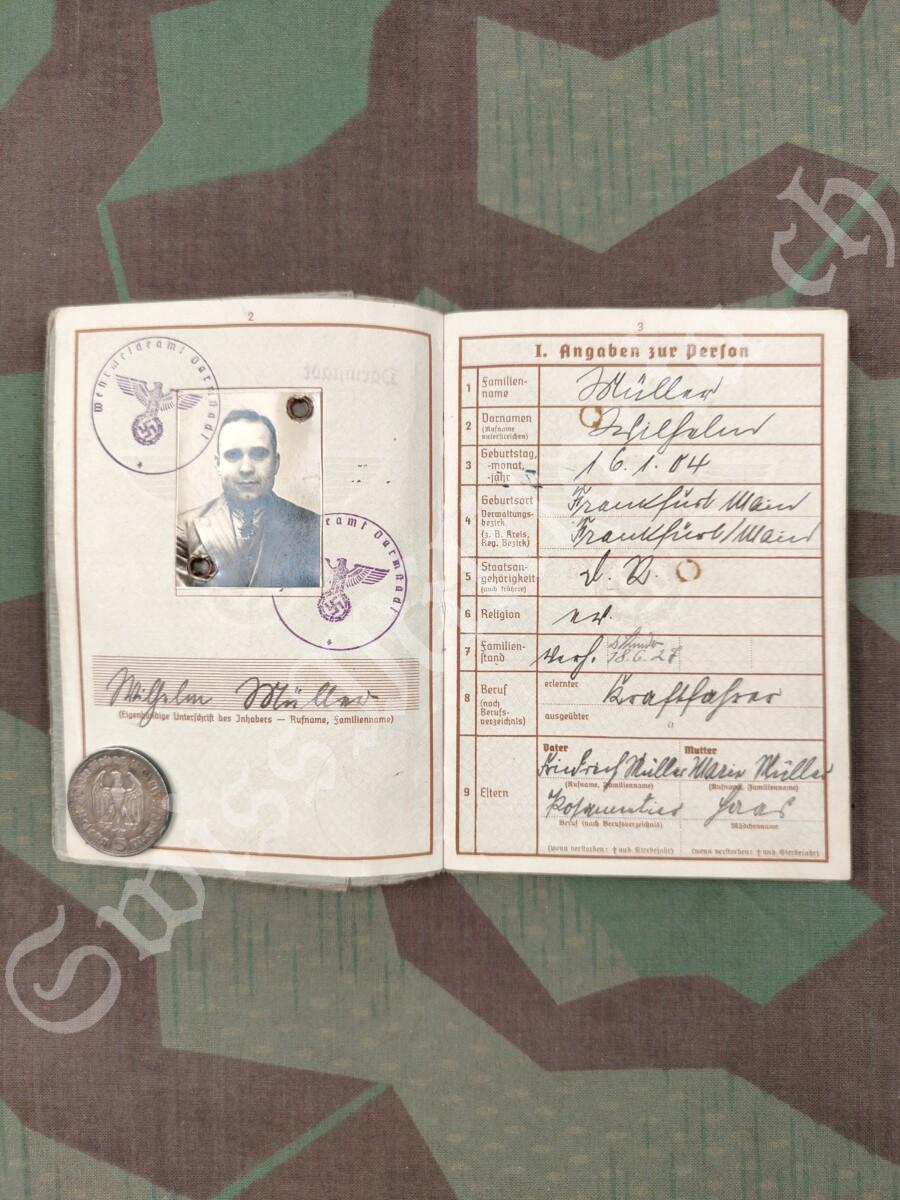 2
Wehrmeldeamt Darmstadt
Darmstadt
Wehrmeldeamt Darmstadt
Wilhelm Müller
(Eigenhändige Unterschrift des Inhabers — Rufname, Familienname)
3
I. Angaben zur Person
1 Familien-
name
Müller
2 Vornamen
(Rufname
unterstreichen)
Wilhelm
3 Geburtstag,
-monat,
-jahr
16.1.04
4 Geburtsort
Verwaltungs-
bezirk
(z. B. Kreis,
Reg. Bezirk)
Frankfurt Main
Frankfurt/Main
5 Staatsan-
gehörigkeit
(auch frühere)
D. R.
6 Religion
ev.
7 Familien-
stand
verh.
18.6.28
8 Beruf
(nach
Berufs-
verzeichnis)
erlernter
Kraftfahrer
ausgeübter
9 Eltern
Vater
Mutter
Friedrich Müller
Marie Müller
(Rufname, Familienname)
(Rufname, Familienname)
Posamentier
Haas
Beruf (nach Berufsverzeichnis)
Mädchenname
(wenn verstorben: † und Sterbejahr)
(wenn verstorben: † und Sterbejahr)
5